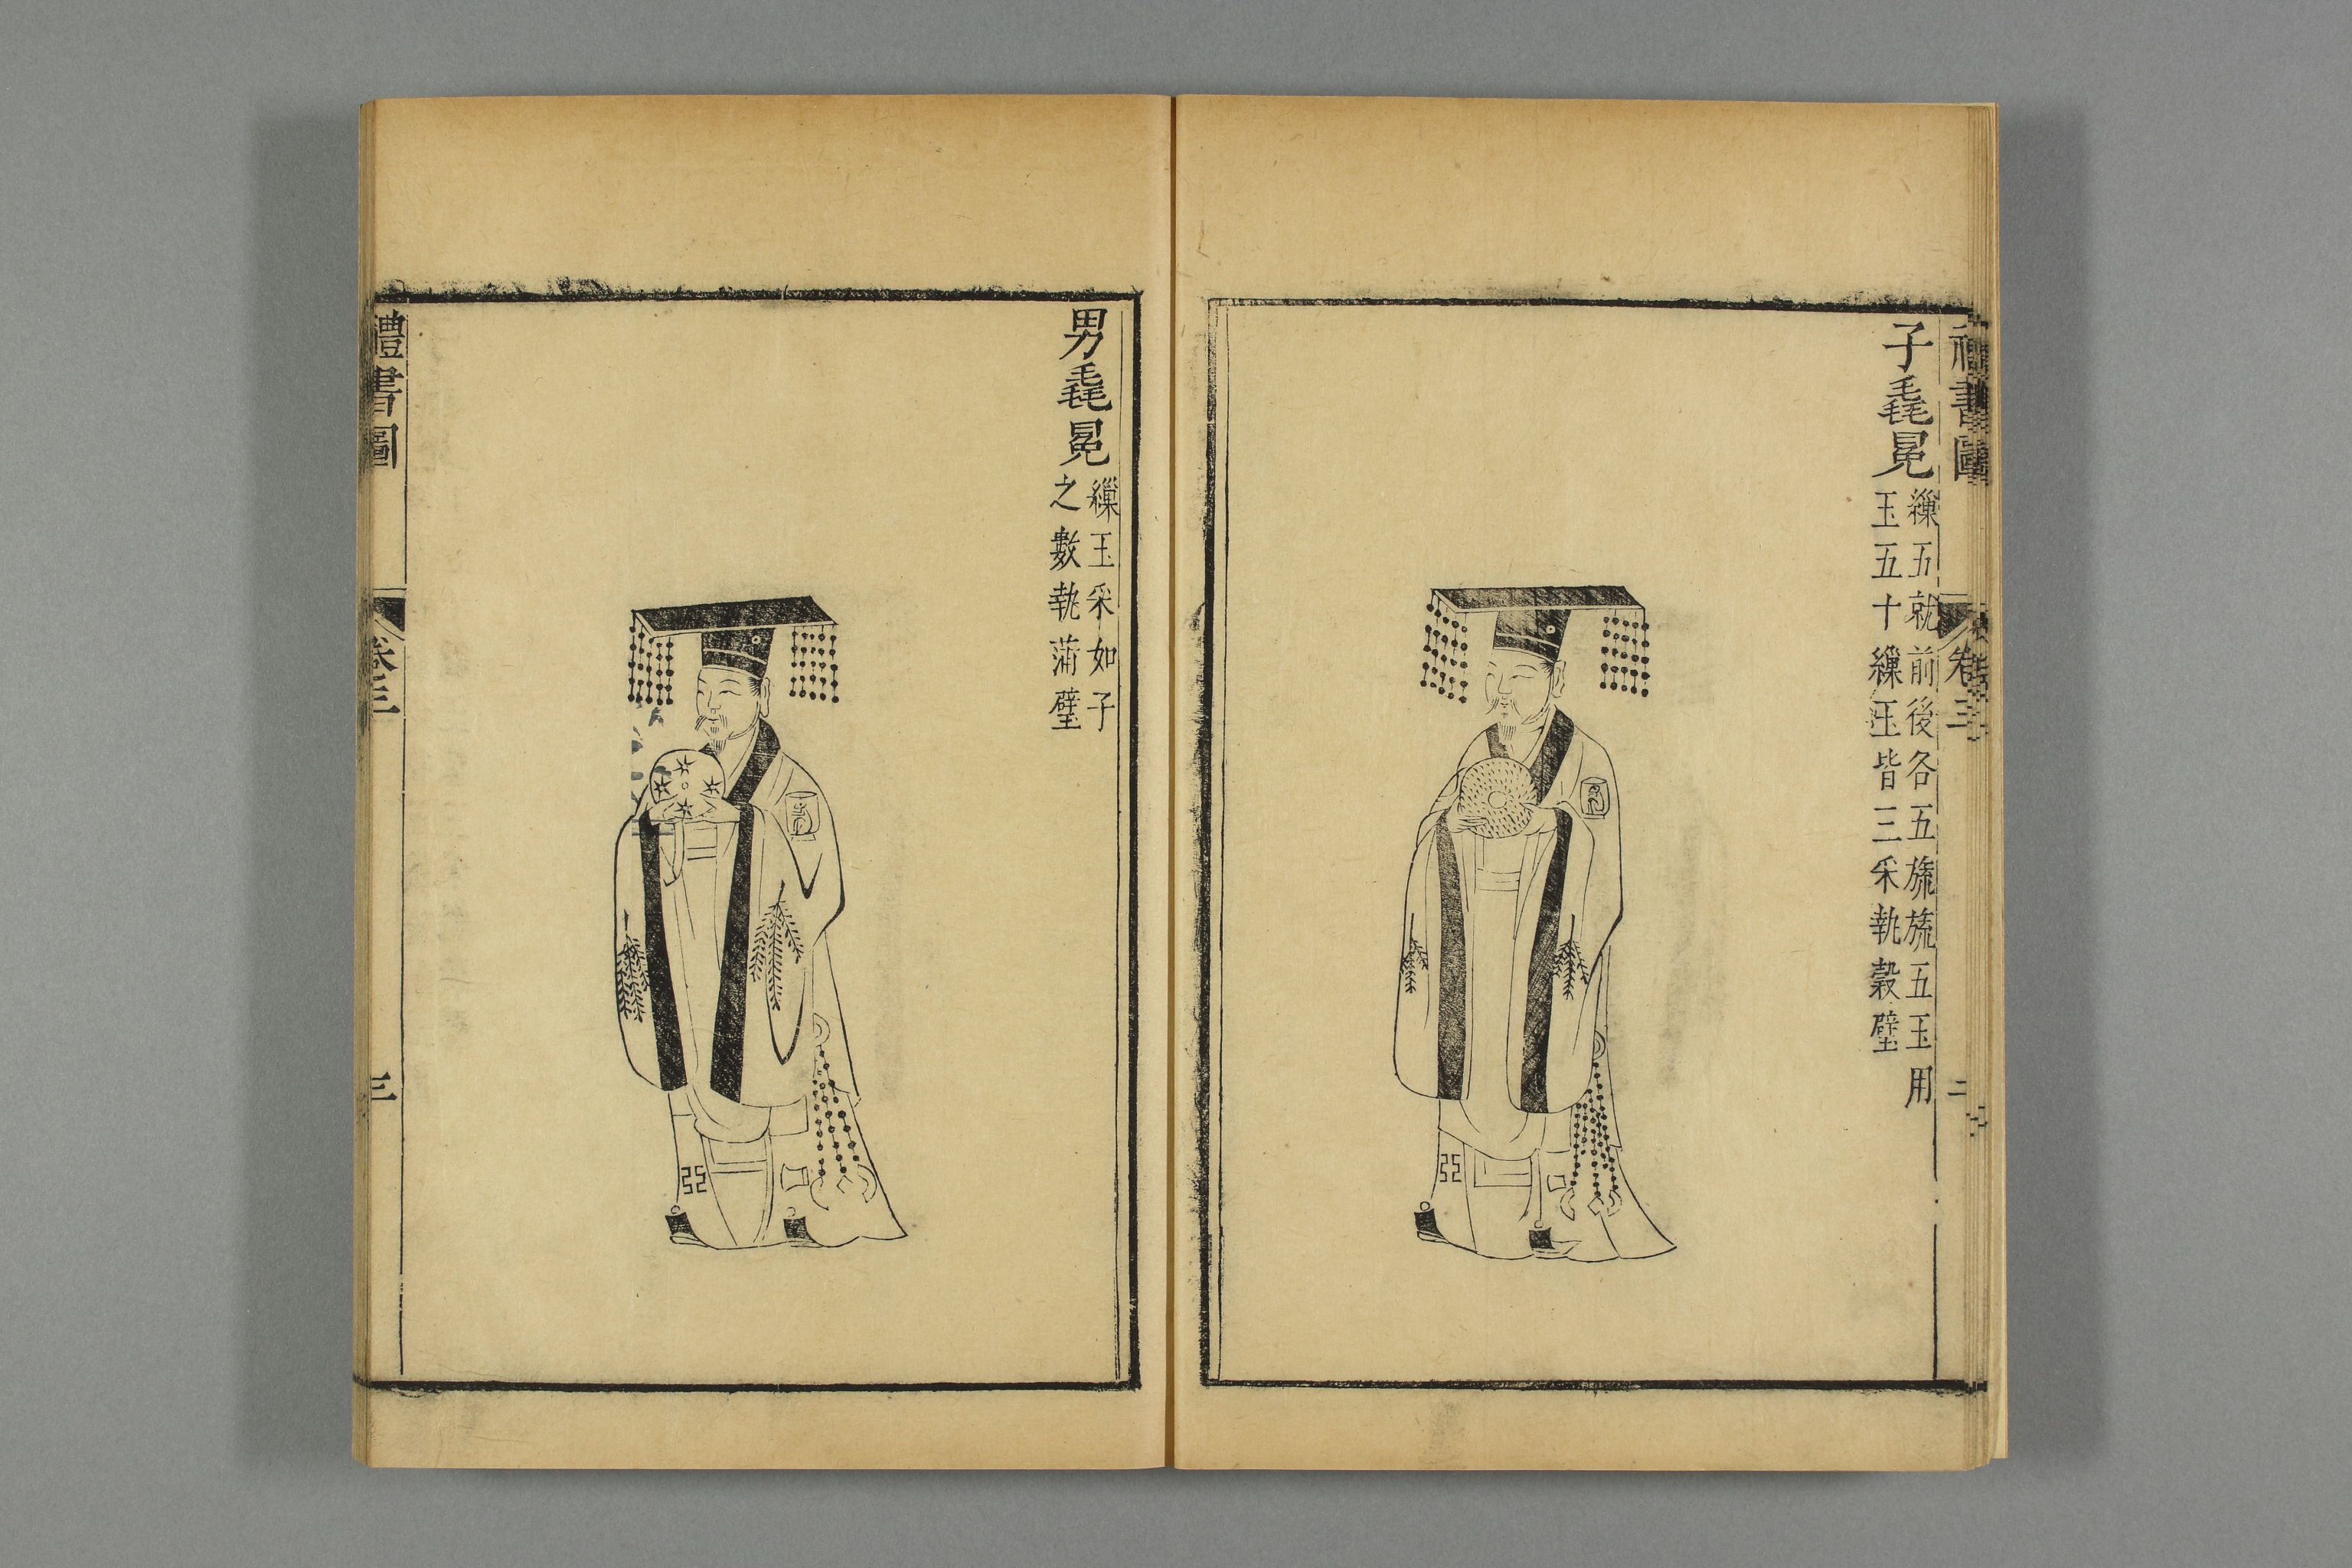 禮書圖
卷三
二
子毳冕
繅五就前後各五旒旒五玉用
玉五十繅玉皆三采執穀璧
男毳冕
繅玉采如子
之數執蒲璧
禮書圖
卷三
三